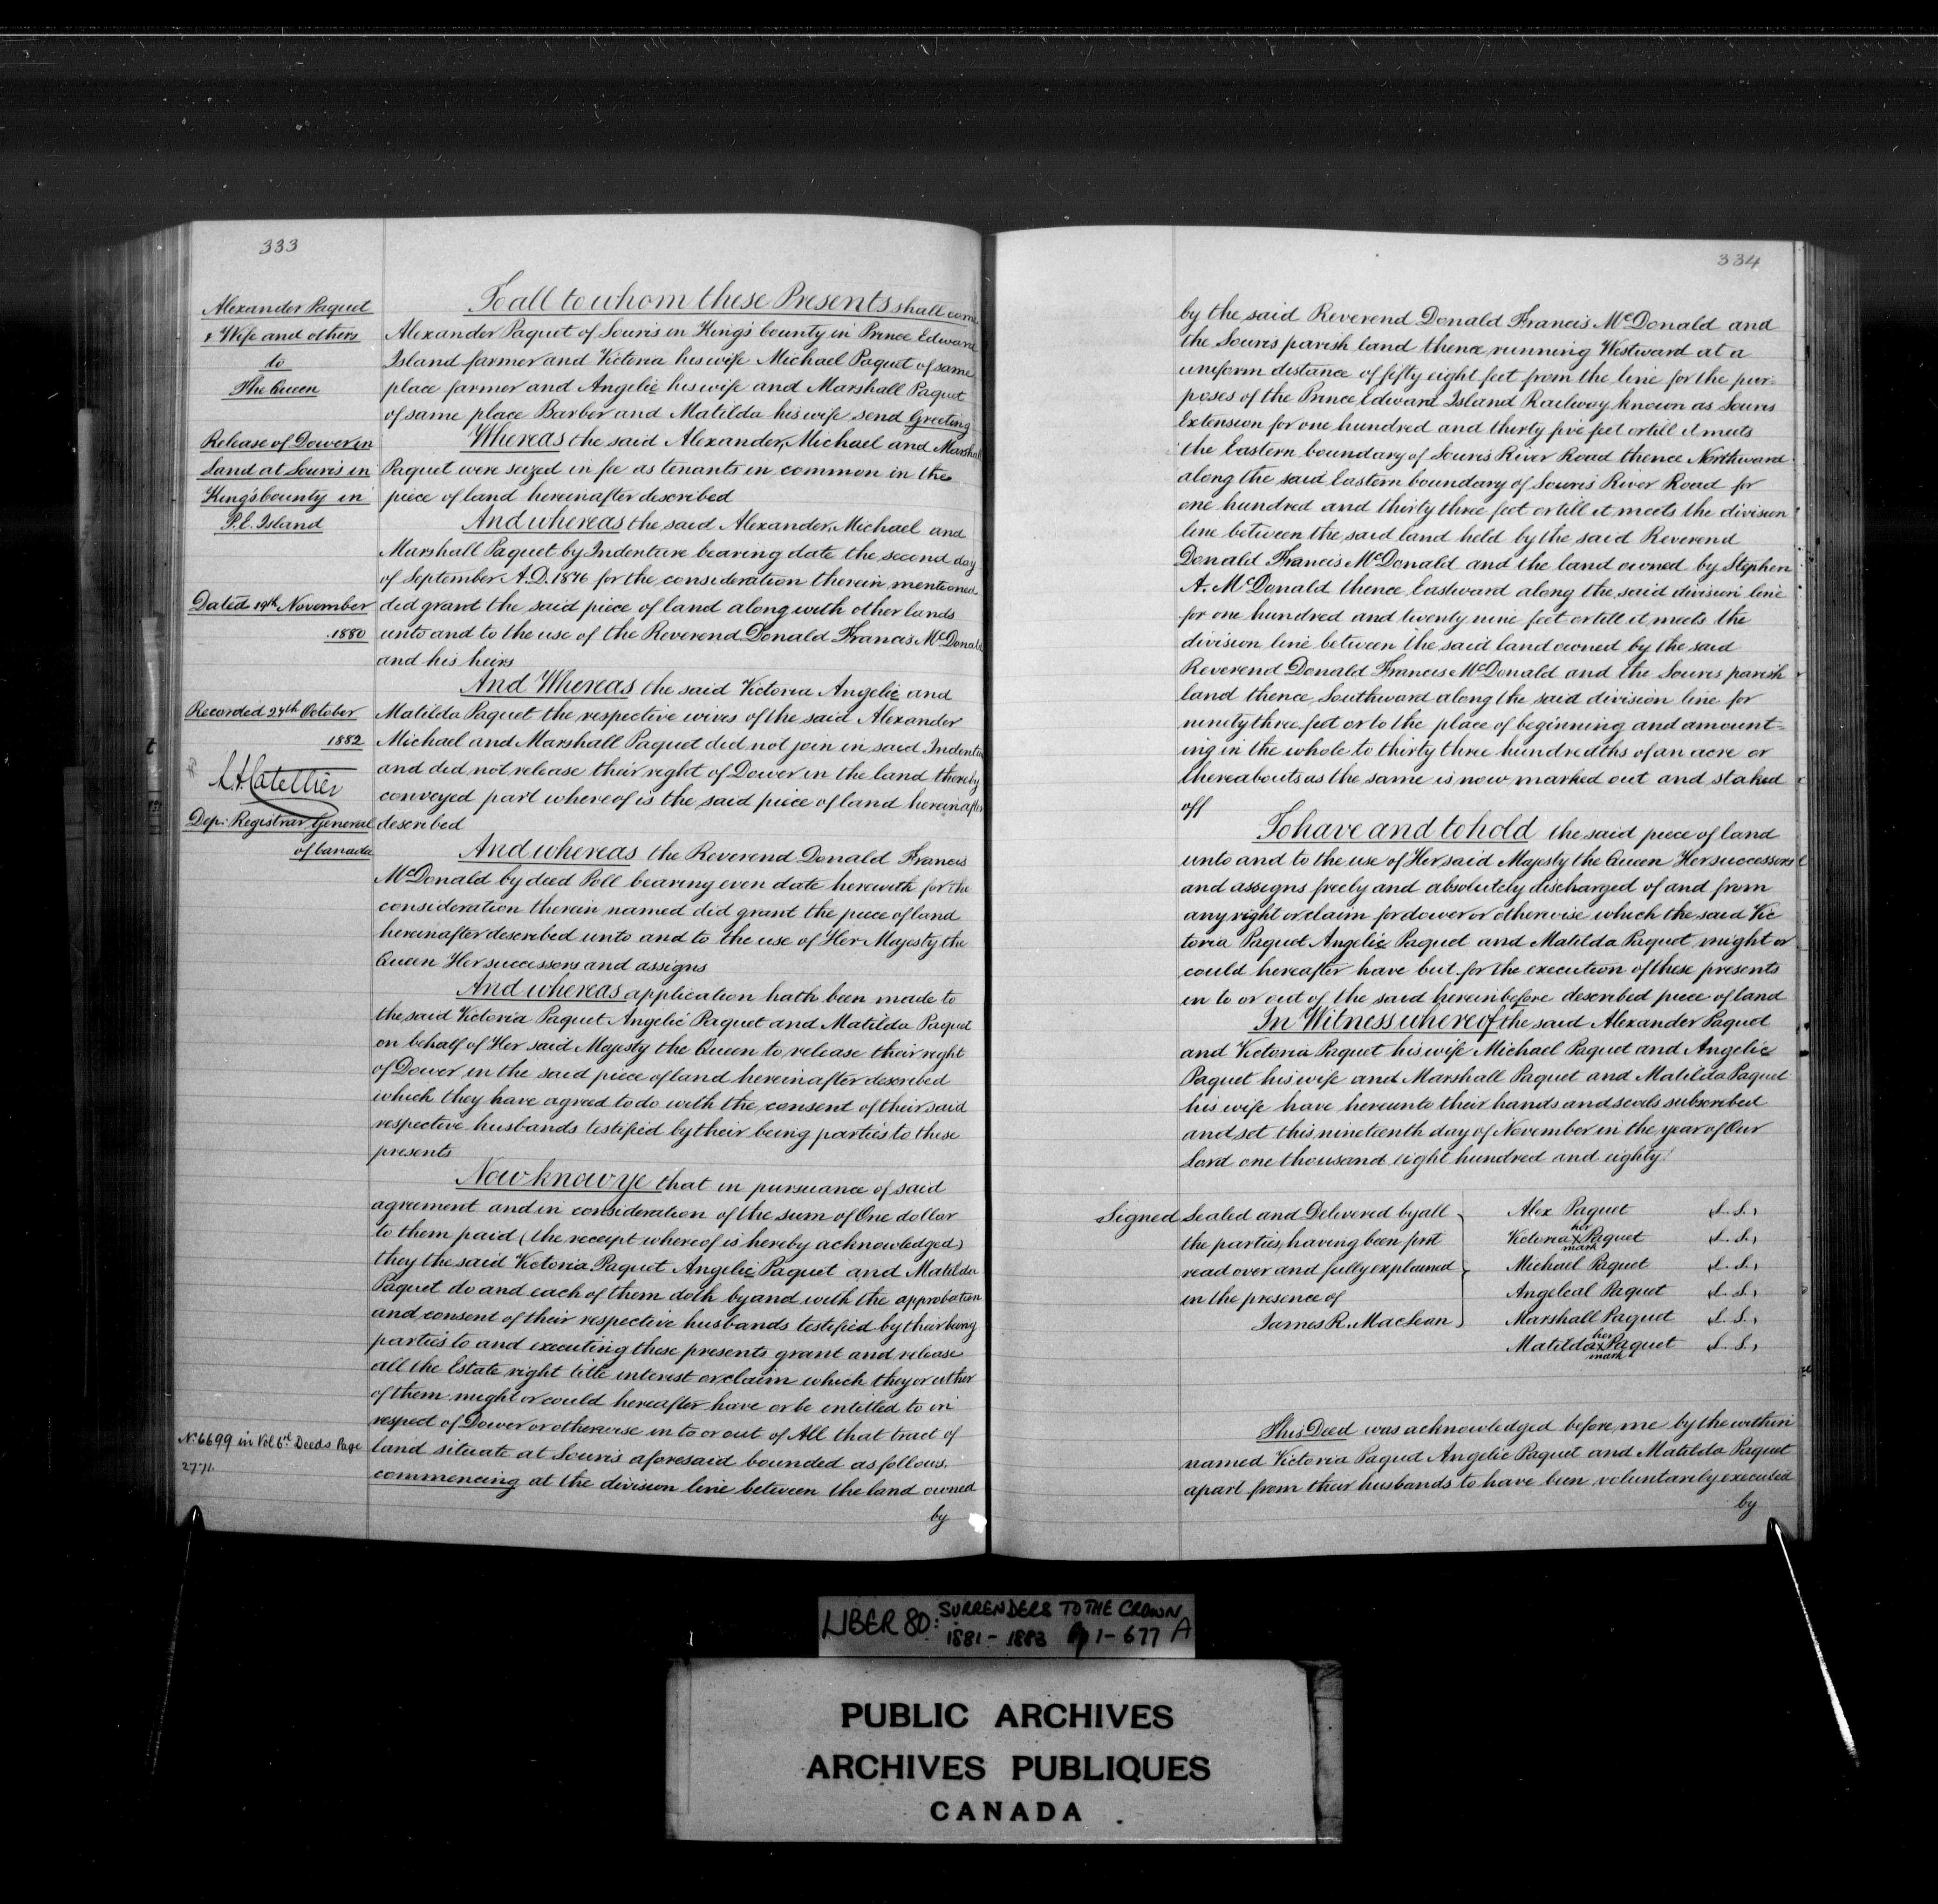 333
Alexander Paquet
& Wife and others
to
The Queen
Release of Dower in
Land at Souris in
King's County in
P.E. Island
Dated 19th November
1880
Recorded 24th October
1882
Dep: Registrar General
of Canada
No 6699 in Vol 6d Deeds Page
2771.
To all to whom these Presents shall come
Alexander Paquet of Souris in King's County in Prince Edward
Island farmer and Victoria his wife Michael Paquet of same
place farmer and Angelic his wife and Marshall Paquet
of same place Barber and Matilda his wife send Greeting
Whereas the said Alexander, Michael and Marshall
Paquet were seized in fee as tenants in common in the
piece of land hereinafter described
And whereas the said Alexander, Michael and
Marshall Paquet by Indenture bearing date the second day
of September A.D. 1876 for the consideration therein mentioned
did grant the said piece of land along with other lands
unto and to the use of the Reverend Donald Francis McDonald
and his heirs
And Whereas the said Victoria Angelic and
Matilda Paquet the respective wives of the said Alexander
Michael and Marshall Paquet did not join in said Indenture
and did not release their right of Dower in the land thereby
conveyed part whereof is the said piece of land hereinafter
described
And whereas the Reverend Donald Francis
McDonald by deed Poll bearing even date herewith for the
consideration therein named did grant the piece of land
hereinafter described unto and to the use of Her Majesty the
Queen Her successors and assigns
And whereas application hath been made to
the said Victoria Paquet Angelic Paquet and Matilda Paquet
on behalf of Her said Majesty the Queen to release their right
of Dower in the said piece of land hereinafter described
which they have agreed to do with the consent of their said
respective husbands testified by their being parties to these
presents
Now know ye that in pursuance of said
agreement and in consideration of the sum of One dollar
to them paid (the receipt whereof is hereby acknowledged)
they the said Victoria Paquet Angelic Paquet and Matilda
Paquet do and each of them doth by and with the approbation
and consent of their respective husbands testified by their being
parties to and executing these presents grant and release
all the Estate right title interest or claim which they or either
of them might or could hereafter have or be entitled to in
respect of Dower or otherwise in to or out of All that tract of
land situate at Souris aforesaid bounded as follows
commencing at the division line between the land owned
by
334
by the said Reverend Donald Francis McDonald and
the Souris parish land thence running Westward at a
uniform distance of fifty eight feet from the line for the pur-
poses of the Prince Edward Island Railway known as Souris
Extension for one hundred and thirty five feet or till it meets
the Eastern boundary of Souris River Road thence Northward
along the said Eastern boundary of Souris River Road for
one hundred and thirty three feet or till it meets the division
line between the said land held by the said Reverend
Donald Francis McDonald and the land owned by Stephen
A. McDonald thence Eastward along the said division line
for one hundred and twenty nine feet or till it meets the
division line between the said land owned by the said
Reverend Donald Francis McDonald and the Souris parish
land thence Southward along the said division line for
ninety three feet or to the place of beginning and amount-
ing in the whole to thirty three hundredths of an acre or
thereabouts as the same is now marked out and staked
off
To have and to hold the said piece of land
unto and to the use of Her said Majesty the Queen Her successors
and assigns freely and absolutely discharged of and from
any right or claim for dower or otherwise which the said Vic
toria Paquet Angelic Paquet and Matilda Paquet might or
could hereafter have but for the execution of these presents
in to or out of the said hereinbefore described piece of land
In Witness whereof the said Alexander Paquet
and Victoria Paquet his wife Michael Paquet and Angelic
Paquet his wife and Marshall Paquet and Matilda Paquet
his wife have hereunto their hands and seals subscribed
and set this nineteenth day of November in the year of Our
Lord one thousand eight hundred and eighty.
Signed Sealed and Delivered by all
the parties, having been first
read over and fully explained
in the presence of
James R. MacLean
Alex Paquet L.S.
her
Victoria X Paquet L.S.
mark
Michael Paquet L.S.
Angeleal Paquet L.S.
Marshall Paquet L.S.
her
Matilda X Paquet L.S.
mark
This Deed was acknowledged before me by the within
named Victoria Paquet Angelic Paquet and Matilda Paquet
apart from their husbands to have been voluntarily executed
by
LIBER 80: SURRENDERS TO THE CROWN
1881 - 1883 pp 1 - 677 A
PUBLIC ARCHIVES
ARCHIVES PUBLIQUES
CANADA